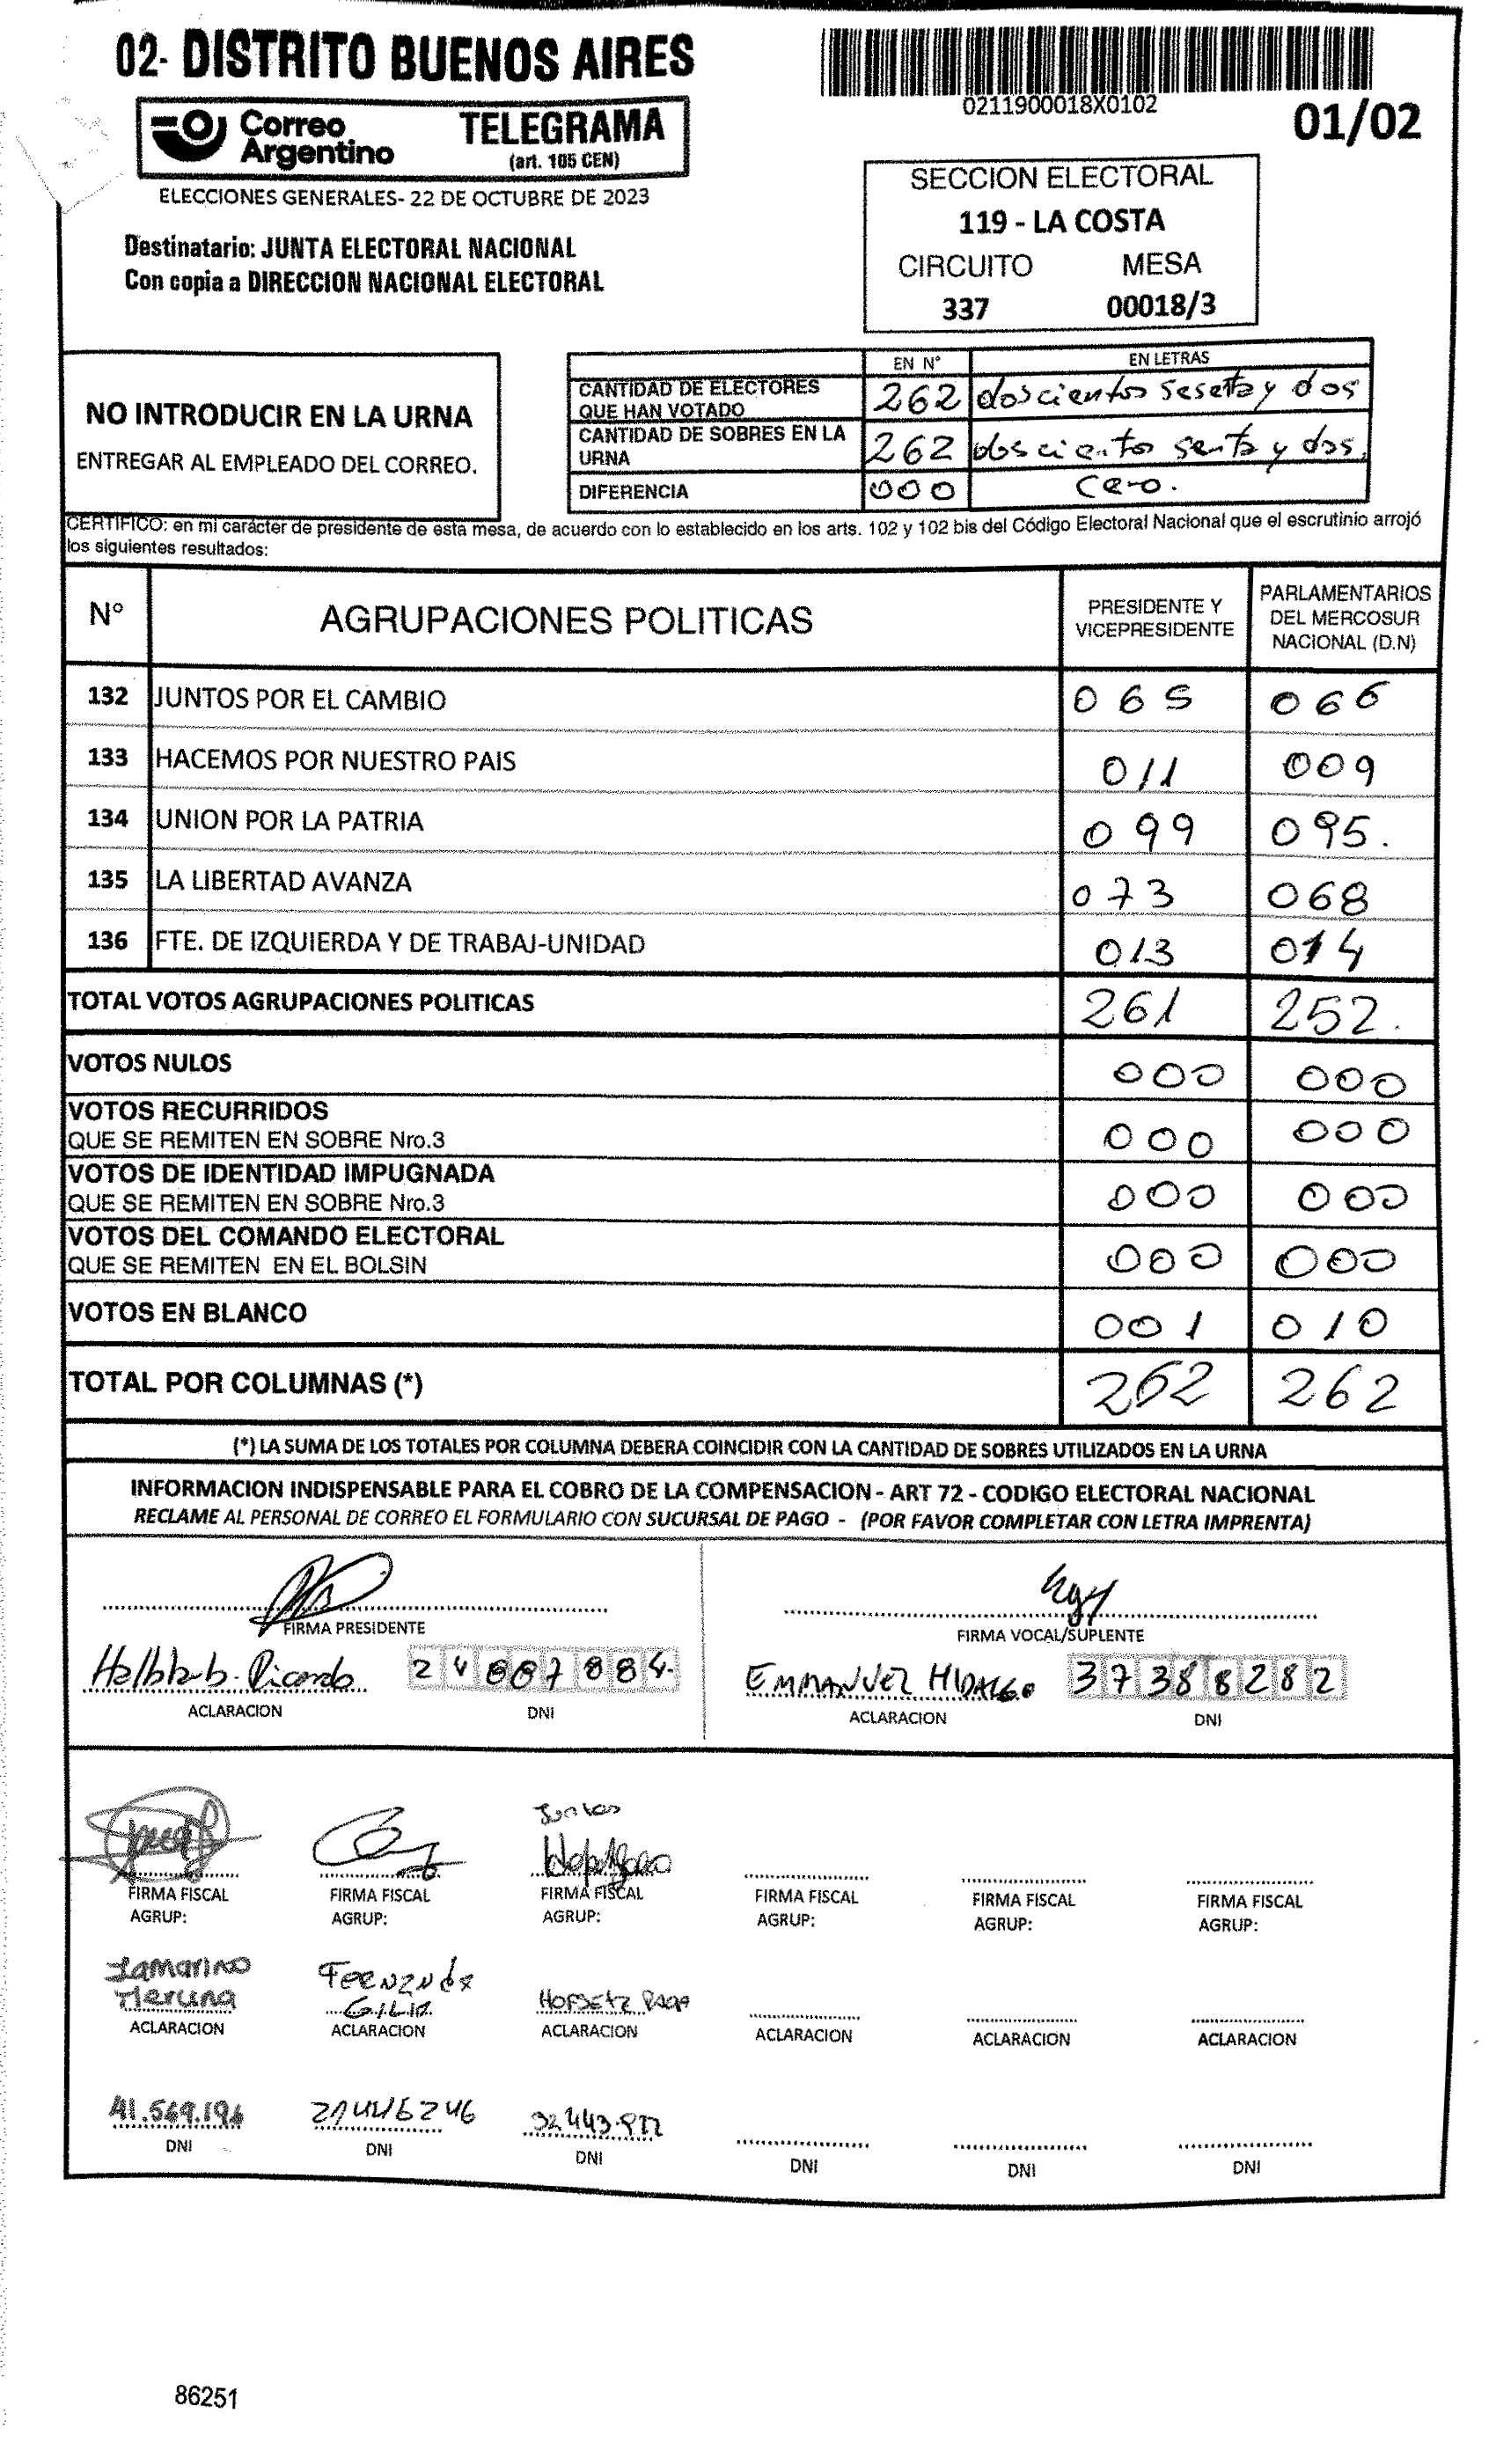 02- DISTRITO BUENOS AIRES
0211900018X0102
01/02
Correo Argentino
TELEGRAMA
(art. 105 CEN)
ELECCIONES GENERALES- 22 DE OCTUBRE DE 2023
Destinatario: JUNTA ELECTORAL NACIONAL
Con copia a DIRECCION NACIONAL ELECTORAL
SECCION ELECTORAL
119 - LA COSTA
CIRCUITO MESA
337 00018/3
NO INTRODUCIR EN LA URNA
ENTREGAR AL EMPLEADO DEL CORREO.
EN N° EN LETRAS
CANTIDAD DE ELECTORES QUE HAN VOTADO 262 doscientos sesetta y dos
CANTIDAD DE SOBRES EN LA URNA 262 doscientos senta y dos.
DIFERENCIA 000 cero.
CERTIFICO: en mi carácter de presidente de esta mesa, de acuerdo con lo establecido en los arts. 102 y 102 bis del Código Electoral Nacional que el escrutinio arrojó
los siguientes resultados:
N° AGRUPACIONES POLITICAS PRESIDENTE Y VICEPRESIDENTE PARLAMENTARIOS DEL MERCOSUR NACIONAL (D.N)
132 JUNTOS POR EL CAMBIO 065 066
133 HACEMOS POR NUESTRO PAIS 011 009
134 UNION POR LA PATRIA 099 095.
135 LA LIBERTAD AVANZA 073 068
136 FTE. DE IZQUIERDA Y DE TRABAJ-UNIDAD 013 014
TOTAL VOTOS AGRUPACIONES POLITICAS 261 252.
VOTOS NULOS 000 000
VOTOS RECURRIDOS
QUE SE REMITEN EN SOBRE Nro.3 000 000
VOTOS DE IDENTIDAD IMPUGNADA
QUE SE REMITEN EN SOBRE Nro.3 000 000
VOTOS DEL COMANDO ELECTORAL
QUE SE REMITEN EN EL BOLSIN 000 000
VOTOS EN BLANCO 001 010
TOTAL POR COLUMNAS (*) 262 262
(*) LA SUMA DE LOS TOTALES POR COLUMNA DEBERA COINCIDIR CON LA CANTIDAD DE SOBRES UTILIZADOS EN LA URNA
INFORMACION INDISPENSABLE PARA EL COBRO DE LA COMPENSACION - ART 72 - CODIGO ELECTORAL NACIONAL
RECLAME AL PERSONAL DE CORREO EL FORMULARIO CON SUCURSAL DE PAGO - (POR FAVOR COMPLETAR CON LETRA IMPRENTA)
FIRMA PRESIDENTE FIRMA VOCAL/SUPLENTE
Ricardo EMMANUEL HIDALGO 37388282
ACLARACION DNI ACLARACION DNI
Juntos
FIRMA FISCAL FIRMA FISCAL FIRMA FISCAL FIRMA FISCAL FIRMA FISCAL FIRMA FISCAL
AGRUP: AGRUP: AGRUP: AGRUP: AGRUP: AGRUP:
ACLARACION ACLARACION ACLARACION ACLARACION ACLARACION ACLARACION
41.569.196 21446246
DNI DNI DNI DNI DNI DNI
86251